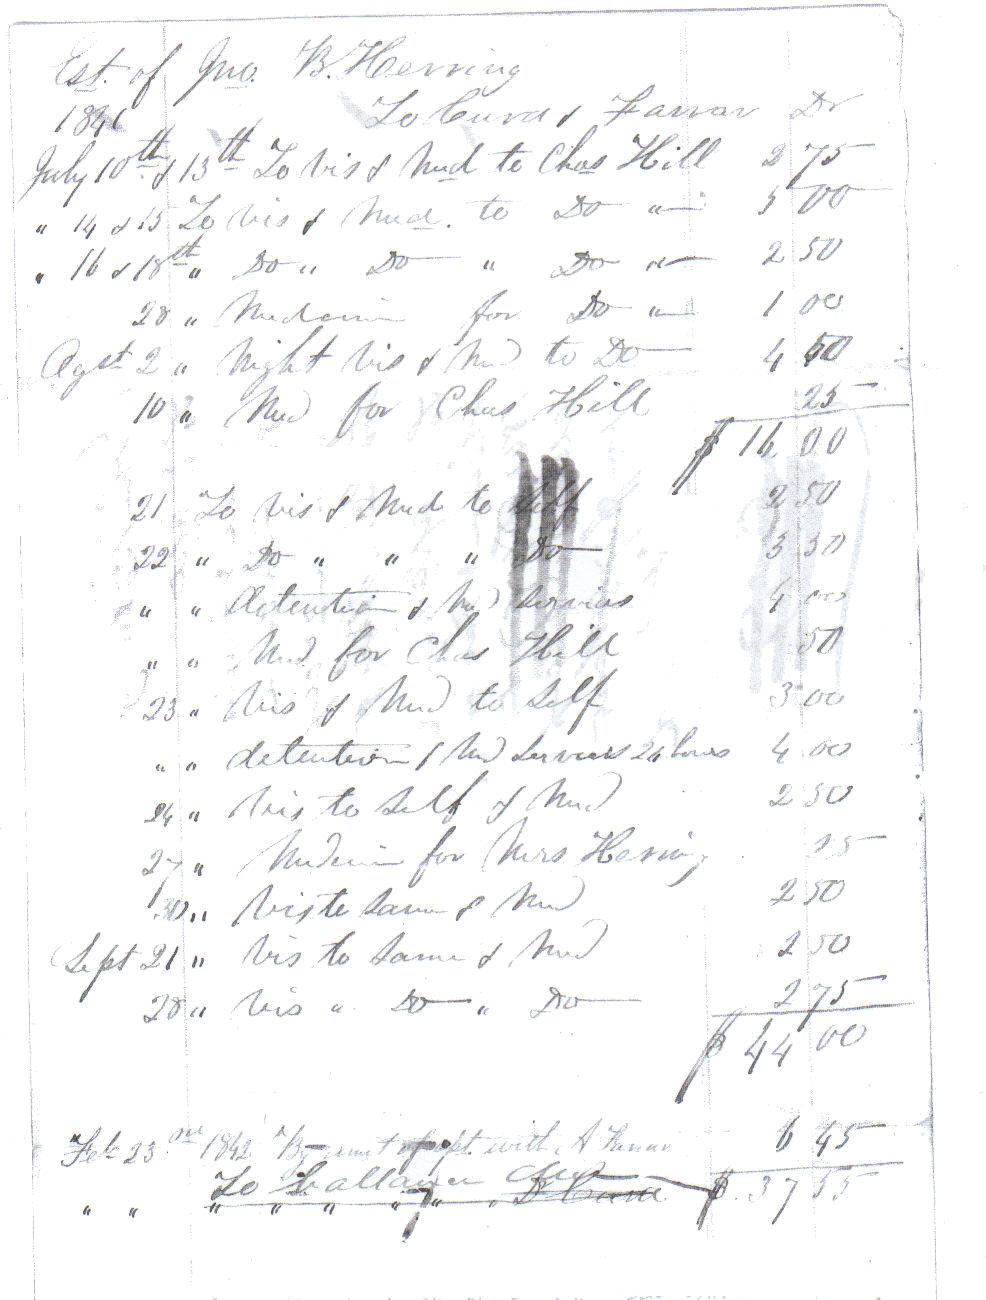 Est. of Jno. B. Herring
1841 To Cura & Farrar Dr
July 10th & 13th To Vis & Med to Chas Hill 2 75
" 14 & 15 To Vis & Med. to Do " 5 00
" 16 & 18th " Do " Do " Do " 2 50
28 " Medecin for Do " 1 00
Agst 2 " Night Vis & Med to Do 4 50
10 " Med for Chas Hill 25
$ 16 00
21 To Vis & Med to Self 2 50
22 " Do " " " Do 3 50
" " detention & Med Services 4 00
" " Med for Chas Hill 50
23 " Vis & Med to Self 3 00
" " detention & Med Services 24 hours 4 00
24 " Vis to Self & Med 2 50
27 " Medecin for Mrs Herring 25
30 " Vis to Same & Med 2 50
Sept 21 " Vis to Same & Med 2 50
28 " Vis " Do " Do 2 75
$ 44 00
Feb 23 1842 By amt of with A Farrar 6 45
To Ballance Due $ 37 55
" " " " " " "